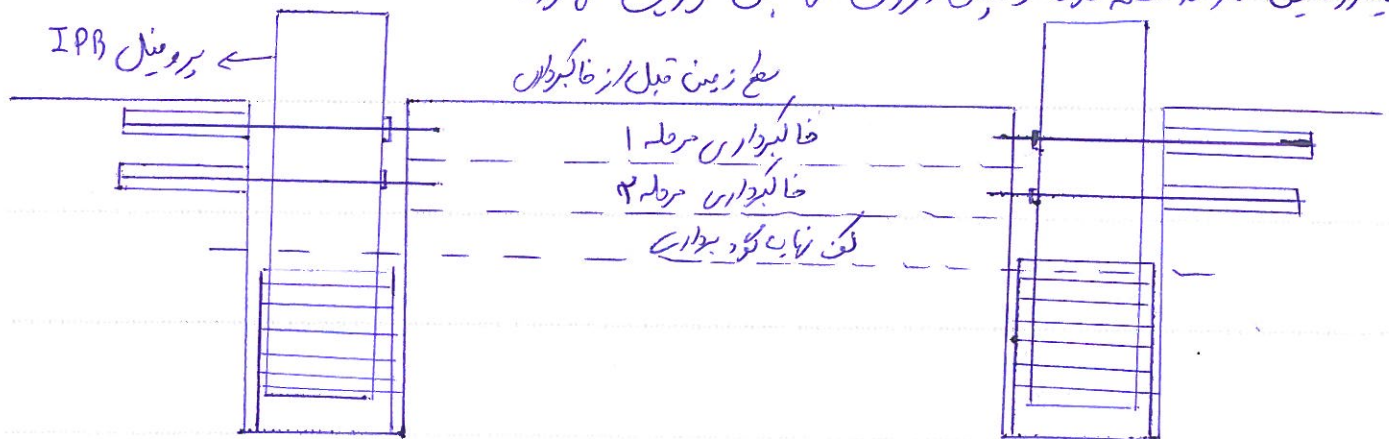 پروفیل IPB
سطح زمین قبل از خاکبرداری
خاکبرداری مرحله ۱
خاکبرداری مرحله ۲
کف نهایی گودبرداری